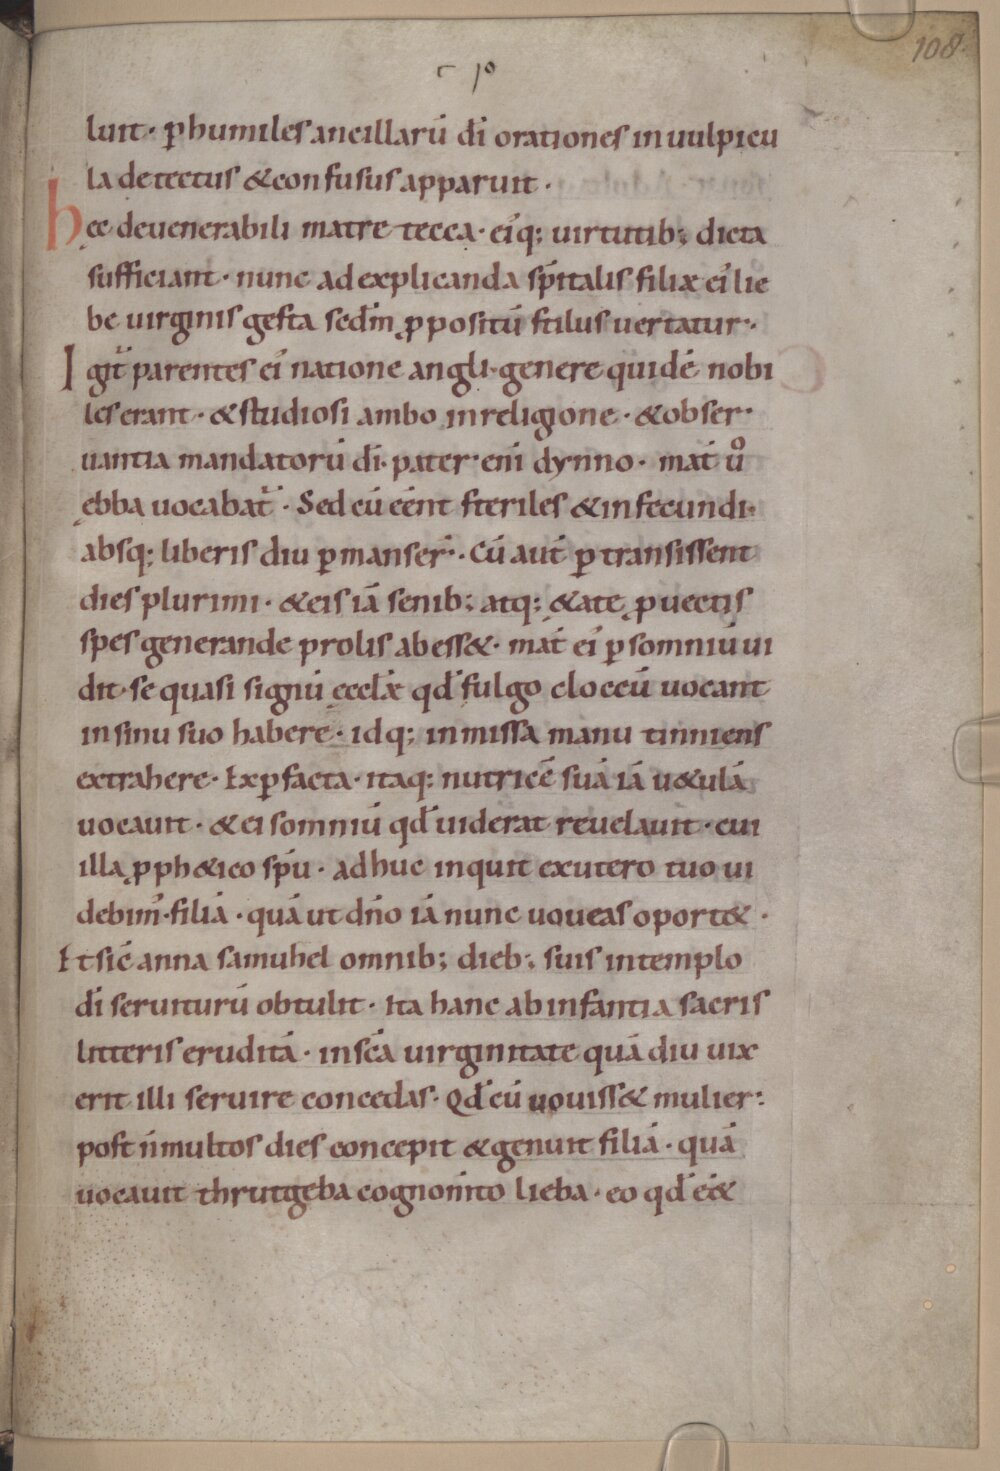 108.
luit · ꝑ humiles ancillarū dī orationes in uulpicu
la detectus & confusus apparuit ·
hęc de uenerabili matre tecca · ei᾽q; uirtutib; dicta
sufficiant · nunc ad explicanda sp̄italis filiæ ei᾽ lie
be uirginis gesta sedm̄ ꝓpositū stilus uertatur ·
Igit᷑ parentes ei᾽ natione angli · genere quidē nobi
les erant · & studiosi ambo in religione · & obser
uantia mandatorū dī · pater eni᾽ dynno · mat̄ ů
ębba uocabat᷑ · Sed cū eēnt steriles & infecundi ·
absq; liberis diu ꝑmanser̄ · Cū aut̄ ꝑtransissent
dies plurimi · & eis iā senib; atq; &atę ꝓuectis
spes generande prolis abess& · mat̄ ei᾽ ꝑ somniū ui
dit · se quasi signū ęcclǣ qd̄ fulgo cloccū uocant
in sinu suo habere · idq; inmissa manu tinniens
extrahere · Exꝑfacta · itaq; nutricē suā iā u&ulā
uocauit · & ei somniū qd̄ uiderat reuelauit · cui
illa ꝓph&ico sp̄u · adhuc inquit ex utero tuo ui
debim᾽ filiā · quā ut dn̄o iā nunc uoueas oport& ·
Et sic̄ anna samuhel omnib; dieb; suis in templo
dī seruiturū obtulit · ita hanc ab infantia sacris
litteris eruditā · in sc̄a uirginitate quā diu uix
erit illi seruire concedas · Qd̄ cū uouiss& mulier :
post n̄ multos dies concepit & genuit filiā · quā
uocauit thrutgeba cognom̄to lieba · eo qd̄ e᾽&